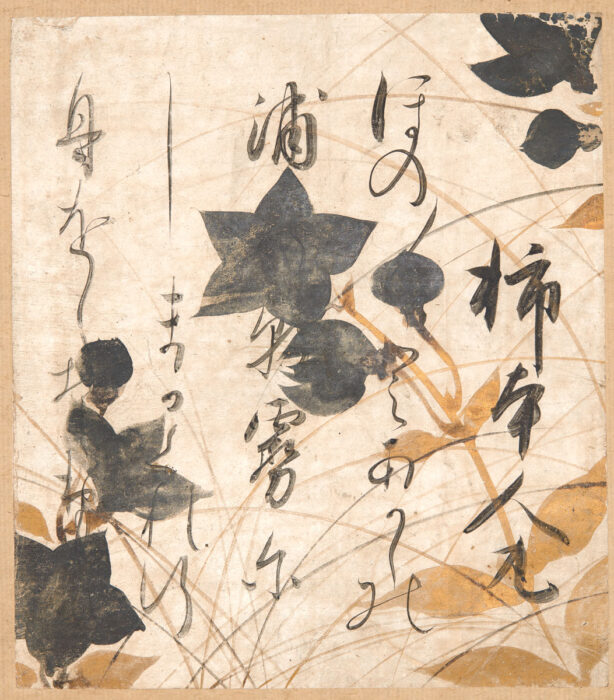 柿本人丸
ほの〱とあかしの
浦の朝霧尓
しまかくれ行
舟をし思